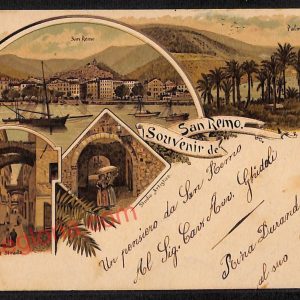 San Remo
Palm
Souvenir de
San Remo.
Strada
Studio Artistico
Un pensiero da San Remo
Al Sig. Cav. Avv. Ghiddi
Nina Durand
al suo